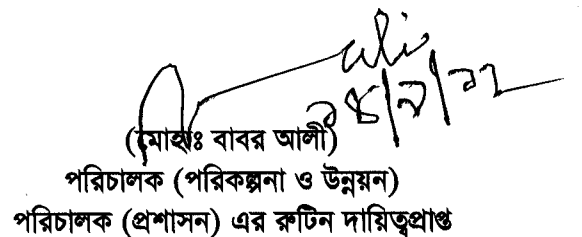 (মোহাঃ বাবর আলী)
পরিচালক (পরিকল্পনা ও উন্নয়ন)
পরিচালক (প্রশাসন) এর রুটিন দায়িত্বপ্রাপ্ত